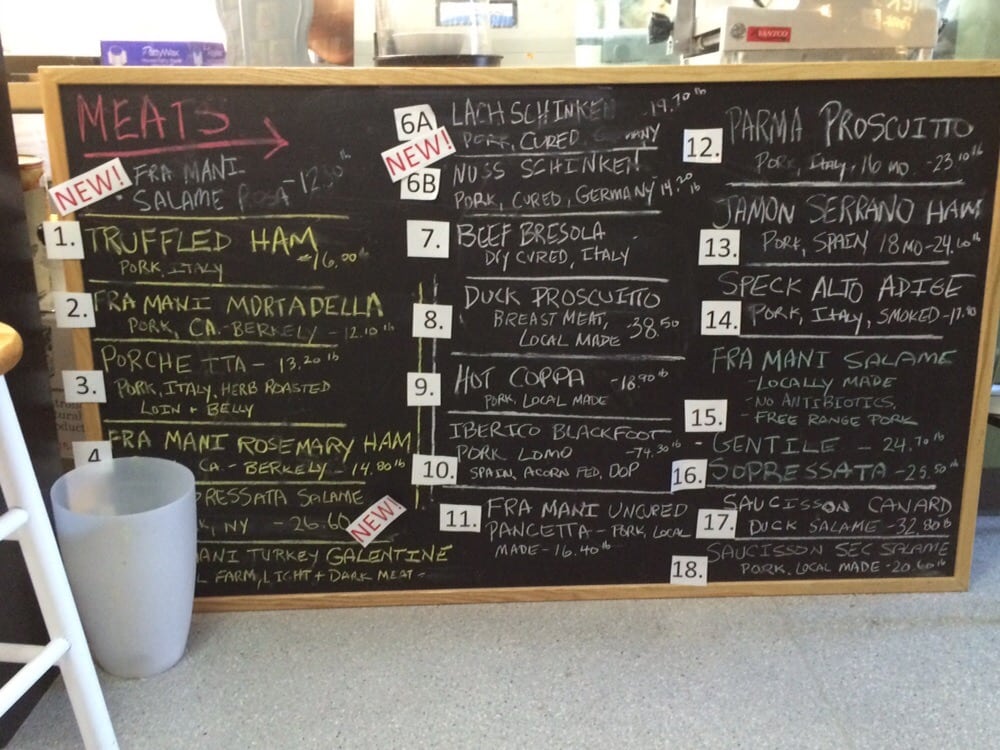 MEATS
NEW!
FRA MANI
- SALAME ROSA -
1.
TRUFFLED HAM
PORK, ITALY -16.00 lb
2.
FRA MANI MORTADELLA
PORK, CA.-BERKELY - 12.10 lb
3.
PORCHETTA - 13.20 lb
PORK, ITALY, HERB ROASTED
LOIN + BELLY
4
FRA MANI ROSEMARY HAM
CA.-BERKELY - 14.80 lb
PRESSATA SALAME
NY - 26.60
NEW!
ANI TURKEY GALENTINE
FARM, LIGHT + DARK MEAT -
6A
LACHSCHINKEN 19.70 lb
PORK, CURED, GERMANY
NEW!
6B
NUSS SCHINKEN
PORK, CURED, GERMANY 14.20 lb
7.
BEEF BRESOLA
DRY CURED, ITALY
8.
DUCK PROSCUITTO
BREAST MEAT, -38.50
LOCAL MADE
9.
HOT COPPA -18.90 lb
PORK, LOCAL MADE
10.
IBERICO BLACKFOOT
PORK LOMO -74.30 lb
SPAIN, ACORN FED, DOP
11.
FRA MANI UNCURED
PANCETTA - PORK, LOCAL
MADE - 16.40 lb
12.
PARMA PROSCUITTO
PORK, ITALY, 16 MO - 23.10 lb
13.
JAMON SERRANO HAM
PORK, SPAIN 18 MO - 24.60 lb
14.
SPECK ALTO ADIGE
PORK, ITALY, SMOKED
15.
FRA MANI SALAME
- LOCALLY MADE
- NO ANTIBIOTICS,
- FREE RANGE PORK
- GENTILE - 24.70 lb
16.
SOPRESSATA - 25.50 lb
17.
SAUCISSON CANARD
DUCK SALAME - 32.80 lb
18.
SAUCISSON SEC SALAME
PORK, LOCAL MADE - 20.60 lb